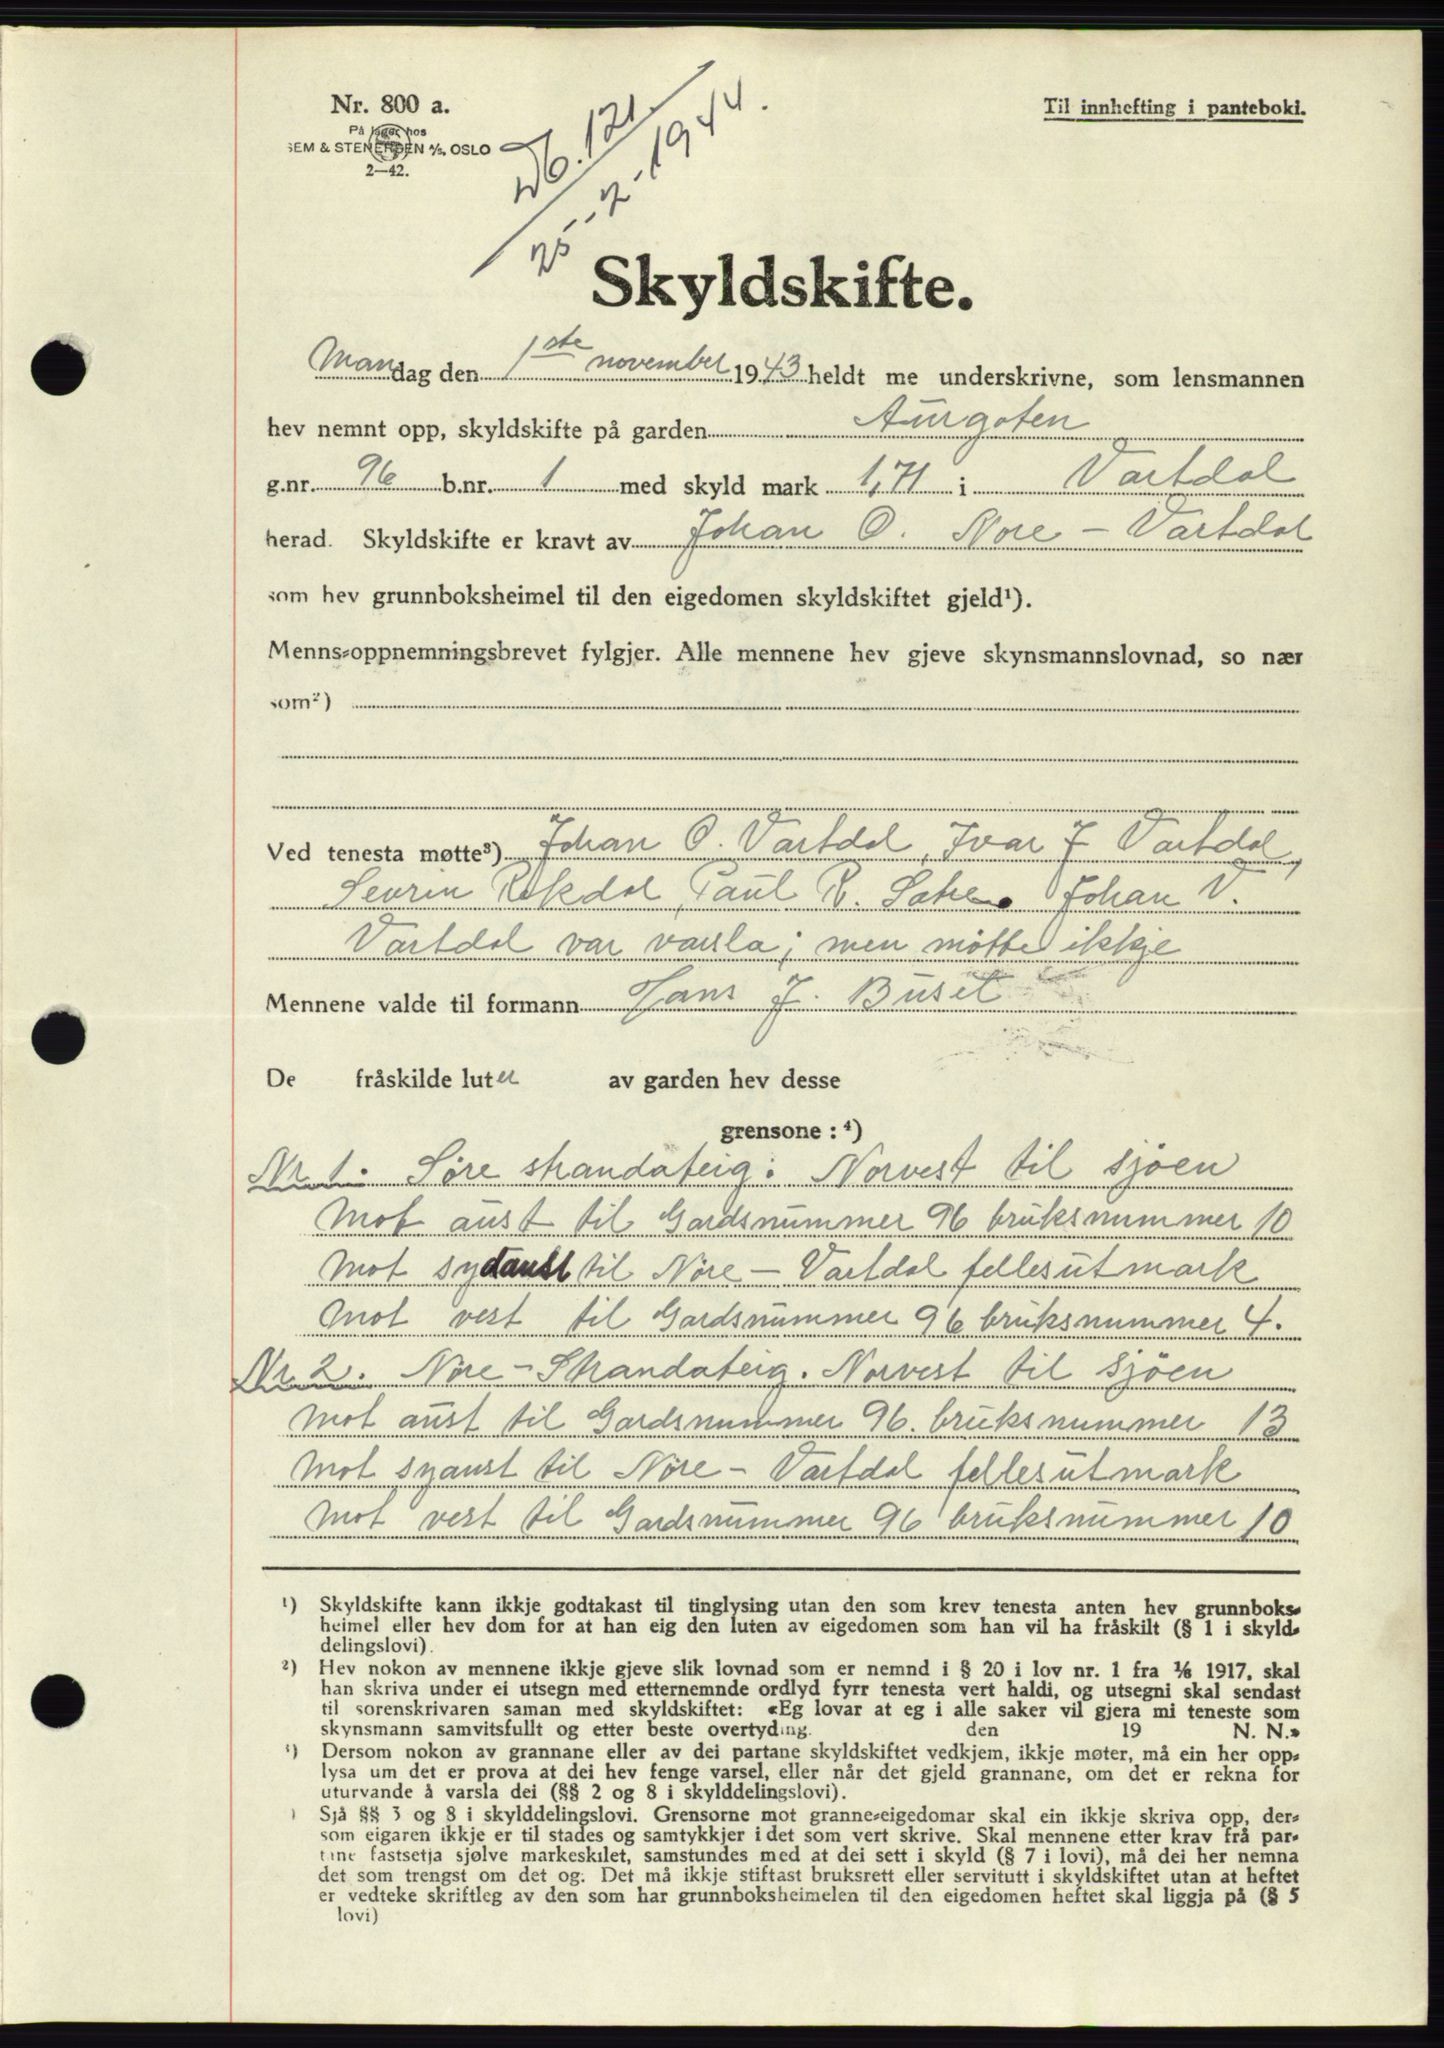 Nr. 800 a.
På lager hos
SEM & STENERSEN A/S, OSLO
2—42.
Til innhefting i panteboki.
121.
25-2-1944.
Skyldskifte.
Mandag den 1ste november 1943 heldt me underskrivne, som lensmannen
hev nemnt opp, skyldskifte på garden Aurgoten
g.nr. 96 b.nr. 1 med skyld mark 1,71 i Vartdal
herad. Skyldskifte er kravt av Johan O. Nore - Vartdal
som hev grunnboksheimel til den eigedomen skyldskiftet gjeld¹).
Menns-oppnemningsbrevet fylgjer. Alle mennene hev gjeve skynsmannslovnad, so nær
som²)
Ved tenesta møtte³) Johan O. Vartdal, Ivar J Vartdal,
Sevrin Rekdal, Paul R. Sætre. Johan V.
Vartdal var varsla; men møtte ikkje
Mennene valde til formann Hans J. Buset
De fråskilde luter av garden hev desse
grensone: ⁴)
Nr. 1. Søre strandateig. Norvest til sjøen
mot aust til Gardsnummer 96 bruksnummer 10
mot sydaust til Nore - Vartdal fellesutmark
mot vest til Gardsnummer 96 bruksnummer 4.
Nr. 2. Nore - Strandateig. Norvest til sjøen
mot aust til Gardsnummer 96. bruksnummer 13
mot syaust til Nøre - Vartdal fellesutmark
mot vest til Gardsnummer 96 bruksnummer 10
¹) Skyldskifte kann ikkje godtakast til tinglysing utan den som krev tenesta anten hev grunnboks-
heimel eller hev dom for at han eig den luten av eigedomen som han vil ha fråskilt (§ 1 i skyld-
delingslovi).
²) Hev nokon av mennene ikkje gjeve slik lovnad som er nemnd i § 20 i lov nr. 1 fra 1/6 1917, skal
han skriva under ei utsegn med etternemnde ordlyd fyrr tenesta vert haldi, og utsegni skal sendast
til sorenskrivaren saman med skyldskiftet: «Eg lovar at eg i alle saker vil gjera mi teneste som
skynsmann samvitsfullt og etter beste overtyding. den 19 N. N.»
³) Dersom nokon av grannane eller av dei partane skyldskiftet vedkjem, ikkje møter, må ein her opp-
lysa um det er prova at dei hev fenge varsel, eller når det gjeld grannane, om det er rekna for
uturvande å varsla dei (§§ 2 og 8 i skylddelingslovi).
) Sjå §§ 3 og 8 i skylddelingslovi. Grensorne mot granne-eigedomar skal ein ikkje skriva opp, der-
som eigaren ikkje er til stades og samtykkjer i det som vert skrive. Skal mennene etter krav frå par-
tane fastsetja sjølve markeskilet, samstundes med at dei sett i skyld (§ 7 i lovi), må dei her nemna
det som trengst om det og. Det må ikkje stiftast bruksrett eller servitutt i skyldskiftet utan at heftet
er vedteke skriftleg av den som har grunnboksheimelen til den eigedomen heftet skal liggja på (§ 5
lovi)